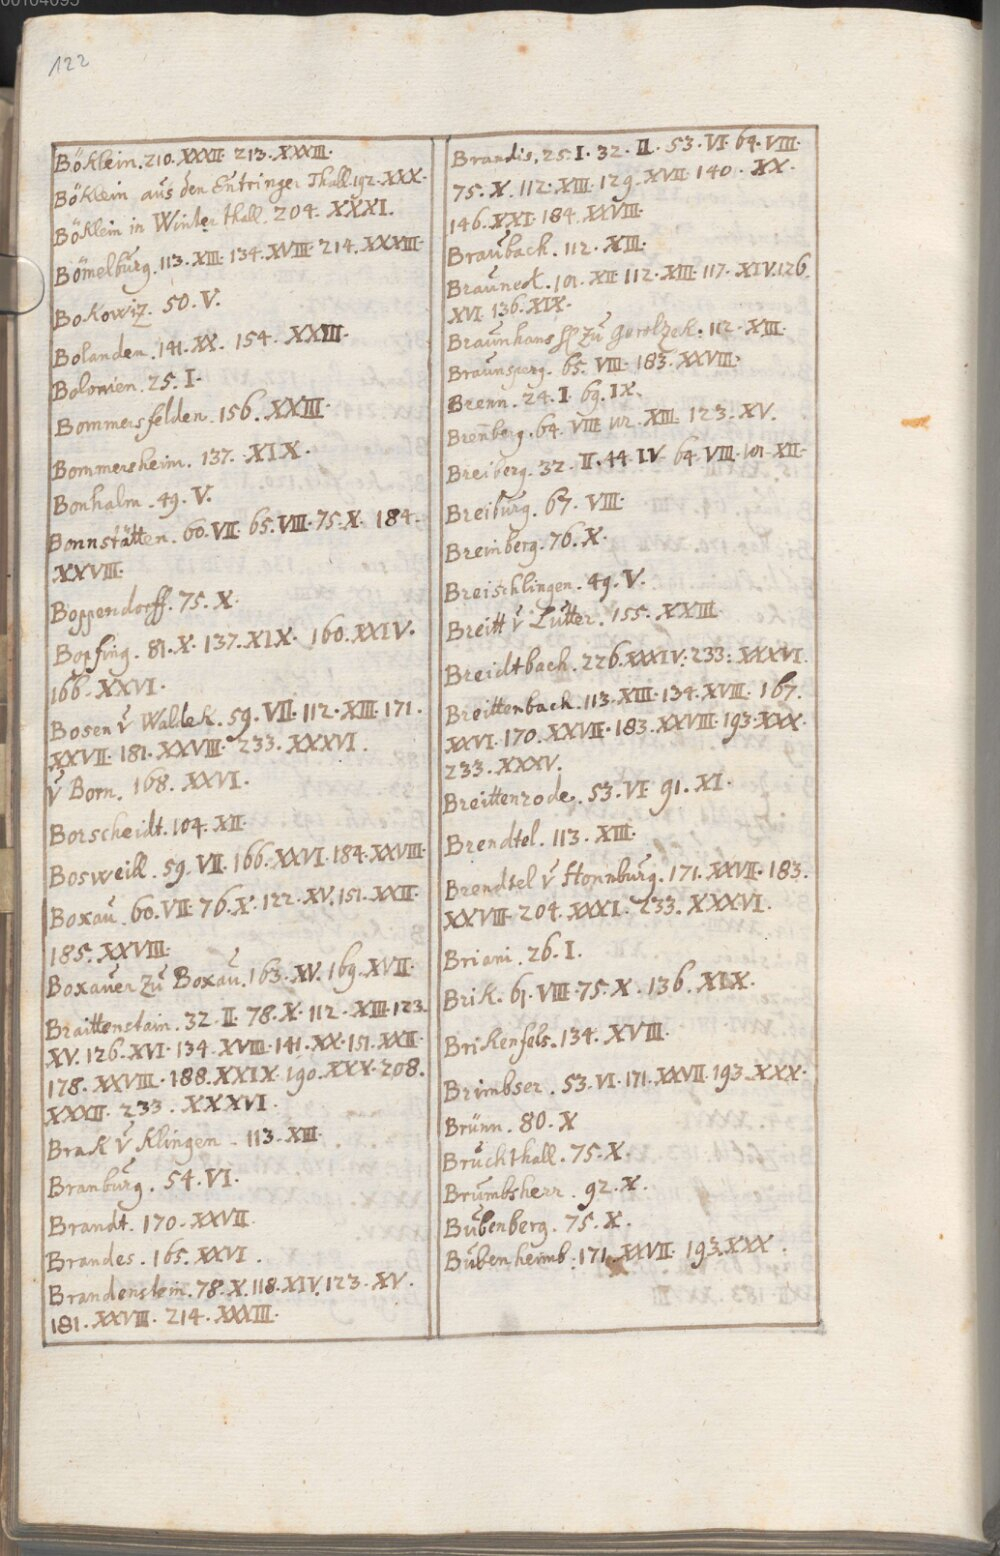 122
Böklein. 210. XXXII. 213. XXXIII.
Böklein aus den Entringer Thall. 192. XXX.
Böklein in Winterthall. 204. XXXI.
Bömelburg. 113. XIII. 134. XVIII. 214. XXXIII.
Bokowiz. 50. V.
Bolanden. 141. XX. 154. XXIII.
Bolonien. 25. I.
Bommersfelden. 156. XXIII.
Bommersheim. 137. XIX.
Bonhalm. 49. V.
Bonnstätten. 60. VII. 65. VIII. 75. X. 184.
XXVIII.
Boppendorff. 75. X.
Bopfing. 81. X. 137. XIX. 160. XXIV.
166. XXVI.
Bosen v̆ Waldek. 59. VII. 112. XIII. 171.
XXVII. 181. XXVIII. 233. XXXVI.
v̆ Born. 168. XXVI.
Borscheidt. 104. XII.
Bosweill. 59. VII. 166. XXVI. 184. XXVIII.
Boxau. 60. VII. 76. X. 122. XV. 151. XXII.
185. XXVIII.
Boxauer zu Boxau. 163. XV. 169. XVII.
Braittenstain. 32. II. 78. X. 112. XIII. 123.
XV. 126. XVI. 134. XVIII. 141. XX. 151. XXII.
178. XXVIII. 188. XXIX. 190. XXX. 208.
XXXII. 233. XXXVI.
Brak v̆ Klingen. 113. XIII.
Branburg. 54. VI.
Brandt. 170. XXVII.
Brandes. 165. XXVI.
Brandenstein. 78. X. 118. XIV. 123. XV.
181. XXVIII. 214. XXXIII.
Brandis. 25. I. 32. II. 53. VI. 64. VIII.
75. X. 112. XIII. 129. XVII. 140. XX.
146. XXI. 184. XXVIII.
Braubach. 112. XIII.
Brauneck. 101. XII. 112. XIII. 117. XIV. 126.
XVI. 136. XIX.
Braunhans zu Gerolzek. 112. XIII.
Braunsperg. 65. VIII. 183. XXVIII.
Brenn. 24. I. 69. IX.
Breñberg. 64. VIII. XIII. 123. XV.
Breiberg. 32. II. 44. IV. 64. VIII. 101. XII.
Breiburg. 67. VIII.
Breinberg. 76. X.
Breischlingen. 49. V.
Breitt v̆ Lutter. 155. XXIII.
Breidtbach. 226. XXXIV. 233. XXXVI.
Breittenbach. 113. XIII. 134. XVIII. 167.
XXVI. 170. XXVII. 183. XXVIII. 193. XXX.
233. XXXV.
Breittenrode. 53. VI. 91. XI.
Brendtel. 113. XIII.
Brendtel v̆ Honnburg. 171. XXVII. 183.
XXVIII. 204. XXXI. 233. XXXVI.
Briani. 26. I.
Brik. 61. VIII. 75. X. 136. XIX.
Brikenfels. 134. XVIII.
Brimbser. 53. VI. 171. XXVII. 193. XXX.
Brünn. 80. X
Bruckthall. 75. X.
Brumbsherr. 92. X.
Bubenberg. 75. X.
Bubenheimb. 171. XXVII. 193. XXX.